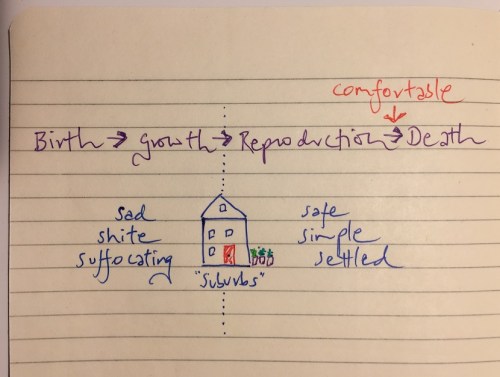 comfortable
Birth → growth → Reproduction → Death
sad
shite
suffocating
"suburbs"
safe
simple
settled